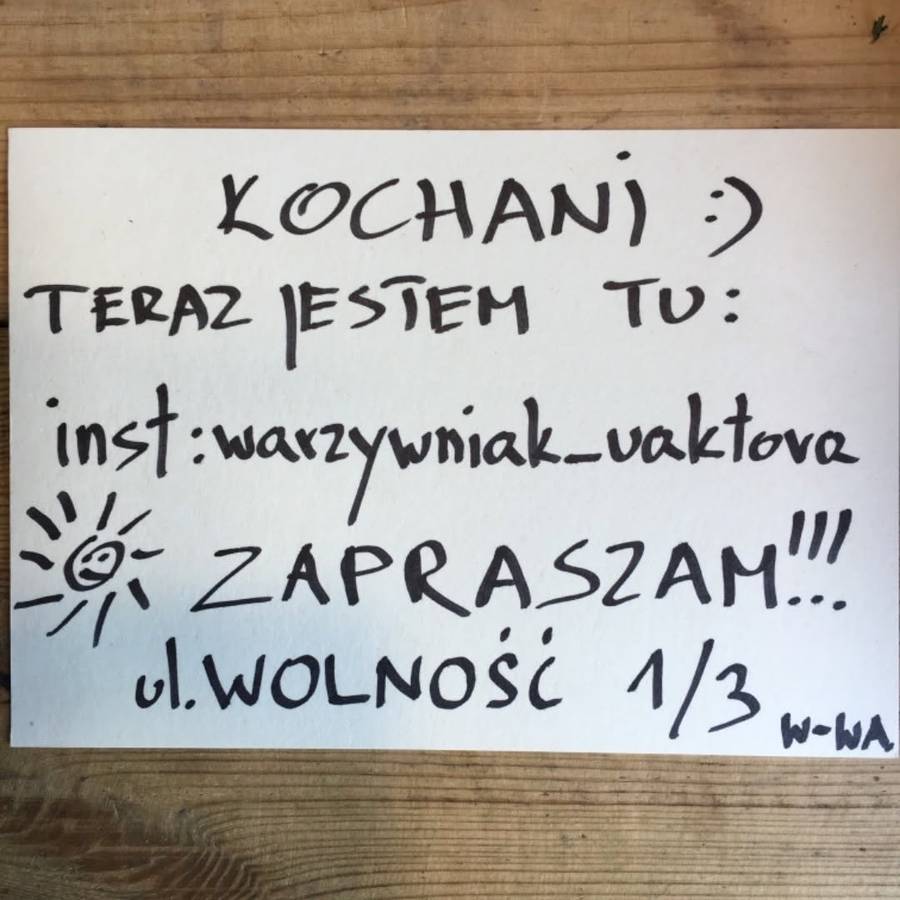 KOCHANI :)
TERAZ JESTEM TU:
inst:warzywniak_vaktova
ZAPRASZAM!!!
ul. WOLNOŚĆ 1/3
W-WA